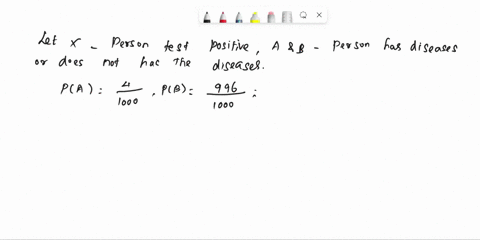 Let X - Person test positive, A & B - Person has diseases
or does not has the diseases.
P(A) : 4/1000 , P(B) : 996/1000 :